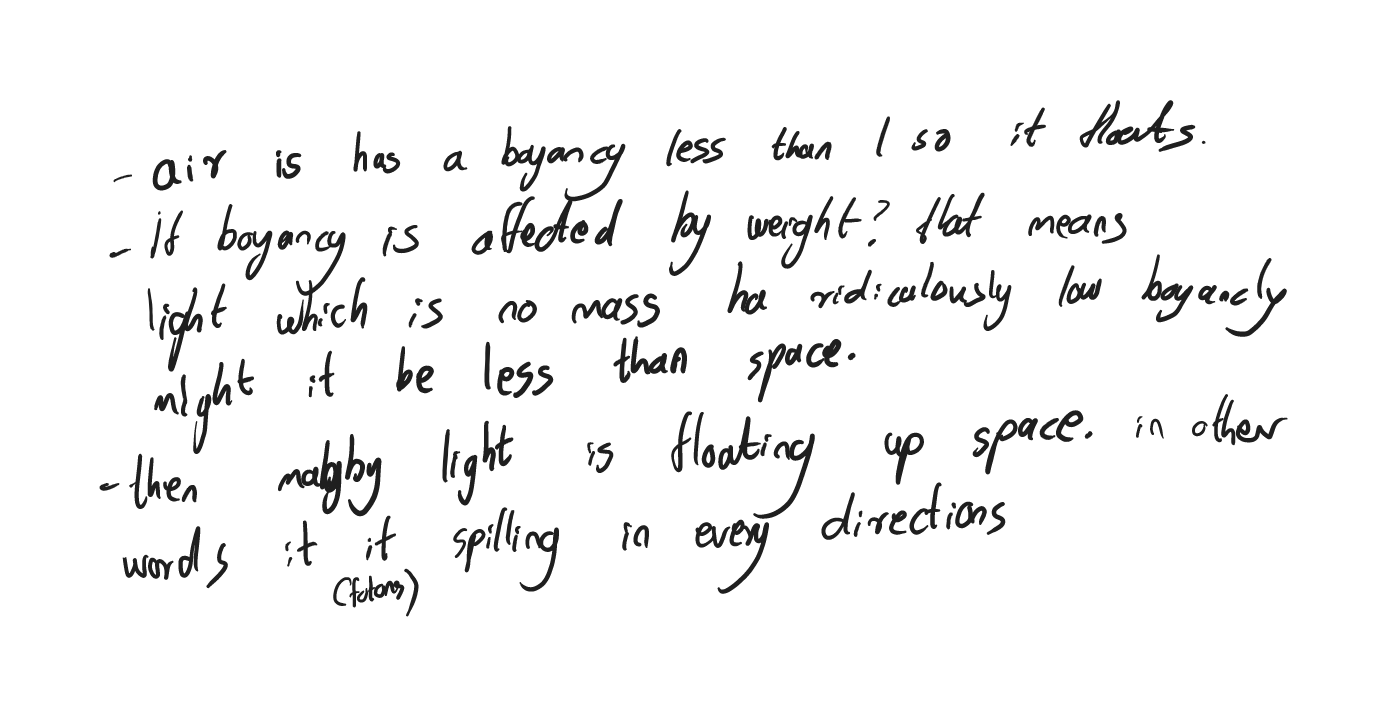 - air is has a boyancy less than 1 so it floats.
- If boyancy is affected by weight? that means
light which is no mass ha ridiculously low boyancly
might it be less than space.
- then mabgby light is floating up space. in other
words it it spilling in every directions
(fotons)